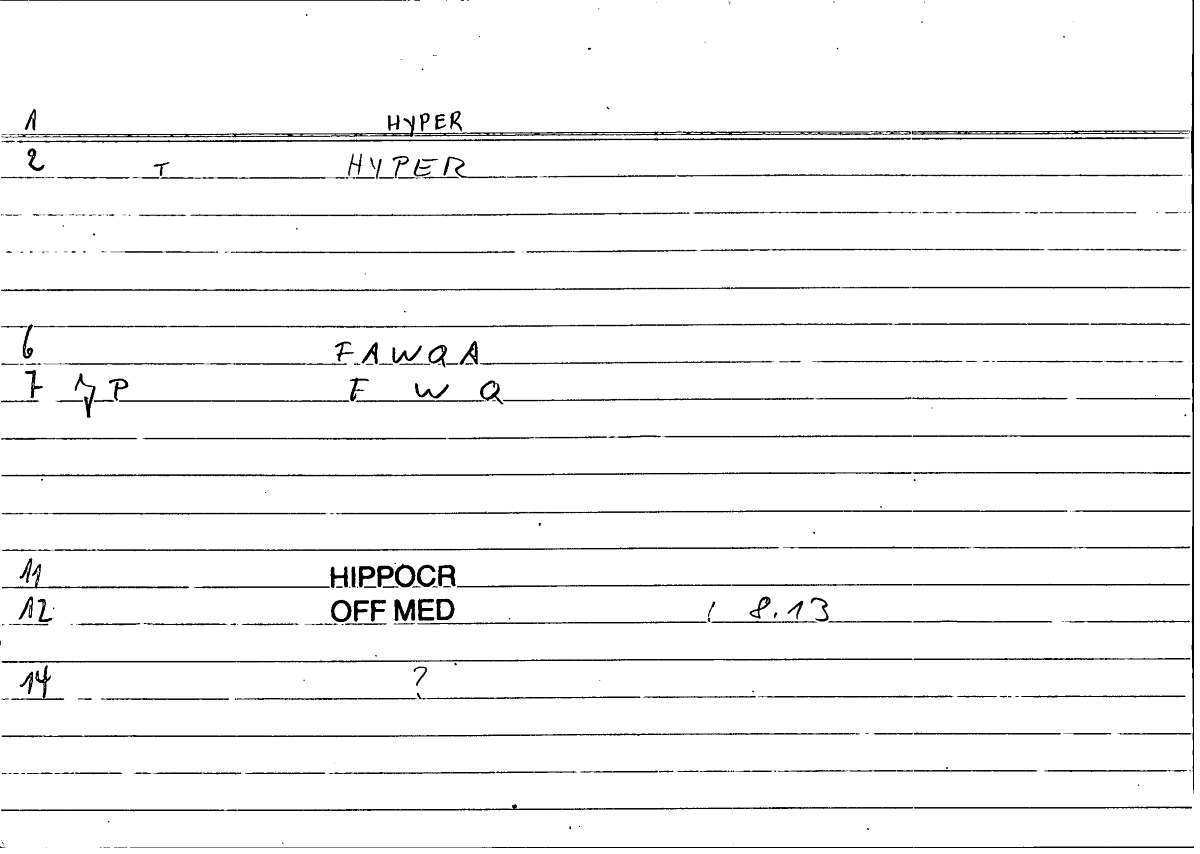 1 HYPER
2 T HYPER
6 FAWQA
7 P F W Q
11 HIPPOCR
12 OFF MED 8.13
14 ?